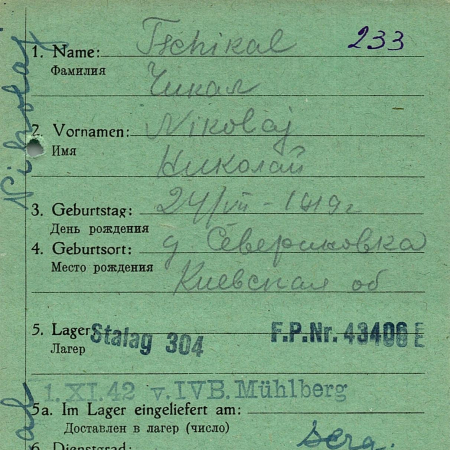 233
1. Name: Tschikal
Фамилия
Чикал
2. Vornamen: Nikolaj
Имя
Николай
3. Geburtstag: 24/VII - 1919 г
День рождения
4. Geburtsort: д. Севериновка
Место рождения
Киевская об
5. Lager Stalag 304 F.P.Nr. 43406 E
Лагерь
1. XI. 42 v. IVB. Mühlberg
5a. Im Lager eingeliefert am:
Доставлен в лагерь (число)
6. Dienstgrad:
Nikolaj